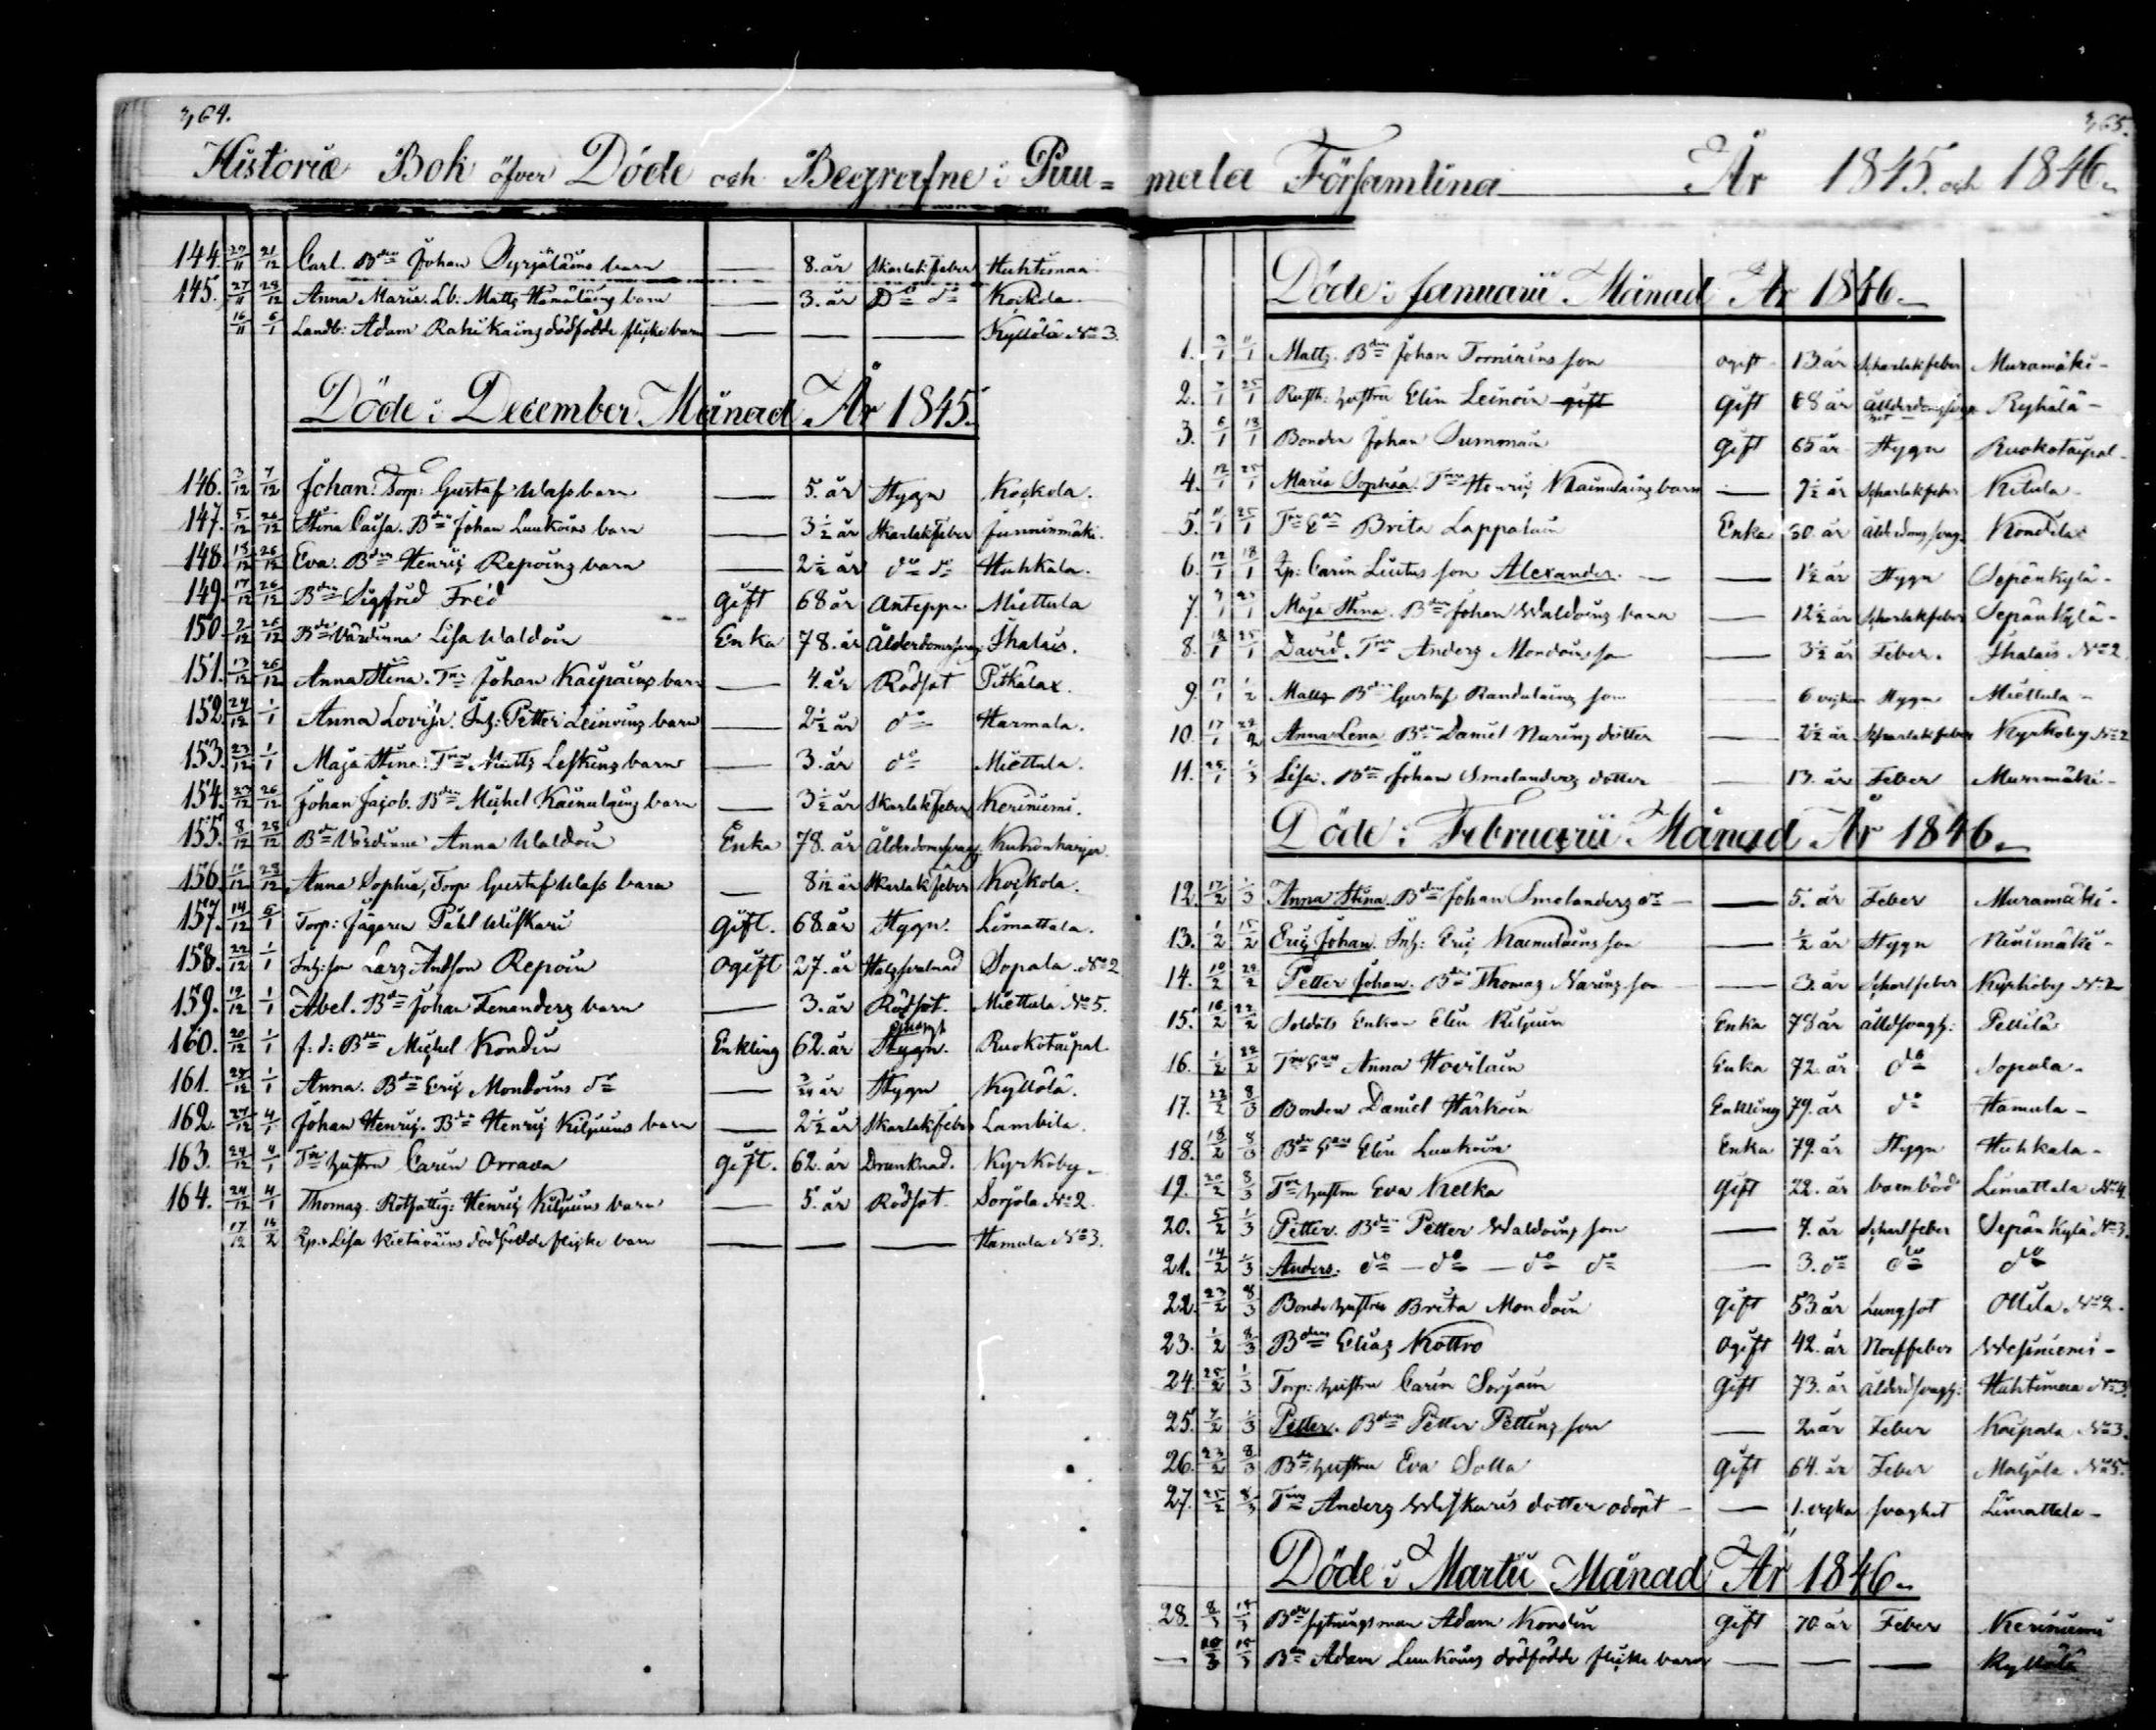 364.
Historiæ Bok öfver Döde och Begrafne i Puu=
144. 27/11 21/12 Carl. Bdens Johan Syrjäläins barn — 8. år Skarlak feber Huhtimaa
145. 27/11 28/12 Anna Maria. Lb: Matts Hämäläinens barn — 3. år Do do Koskola.
16/11 6/1 Landb: Adam Rahikains dödfödde flicke barn — — — Kyllölä No 3.
Döde i December Månad År 1845.
146. 3/12 7/12 Johan. Torp: Gustaf Wlass barn — 5. år Stygn Koskola.
147. 5/12 26/12 Stina Caisa. Bdens Johan Luukoins barn — 3½ år Skarlak feber Junninmäki.
148. 18/12 26/12 Eva. Bdens Henriks Repoins barn — 2½ år do do Huhkala.
149. 17/12 26/12 Bden Sigfrid Fréd gift 68 år Anteppa Miettula
150. 9/12 26/12 Bde Wärdinna Lisa Waldoin Enka 78. år Ålderdomssvag: Ihalais.
151. 13/12 26/12 Anna Stina. Trns Johan Kaipains barn — 4. år Rödsot Pitkälax.
152. 24/12 1/1 Anna Lovisa. Inh: Petter Leinoins barn — 2½ år do Harmala.
153. 23/12 1/1 Maja Stina. Trns Matts Leskins barn — 3. år do Miettula.
154. 23/12 26/12 Johan Jacob. Bdens Michel Kainulains barn — 3½ år Skarlak feber Keriniemi.
155. 8/12 28/12 Bde Wärdinna Anna Waldoin Enka 78. år Ålderdomssvag:
156. 10/12 28/12 Anna Sophia, Torp Gustaf Wlass barn — 8/12 år Skarlak feber Koskola.
157. 14/12 6/1 Torp: Jägaren Påhl Wiskari gift. 68. år Stygn. Limattala.
158. 22/12 1/1 Inh: son Lars Andson Repoin ogift 27. år Halssvulnad Sopala No 2
159. 19/12 1/1 Abel. Bdens Johan Tenanders barn — 3. år Rödsot. Miettula No 5.
160. 20/12 1/1 f: d: Bden Michel Kondin Enkling 62. år Stygn. Ruokotaipal
161. 28/12 1/1 Anna. Bdens Eric Mondoins dr — år Stygn Kyllölä.
162. 27/12 4/1 Johan Henric. Bdens Henric Kiljuins barn — 2½ år Skarlak feber Lambila.
163. 24/12 4/1 Trp hustru Carin Orrava gift. 62. år Drunknad. Kyrkoby
164. 24/12 4/1 Thomas. Rotfattig: Henric Kiljuins barn — 5. år Rödsot. Sorjola No 2.
17/12 15/2 Qp: Lisa Kietäväins dödfödde flicke barn — — — Hamula No 3.
365.
mala Församling År 1845. och 1846
Döde i Januarii Månad År 1846
1. 3/1 11/1 Matts. Bdens Johan Torniains son ogift 13. år Scharlak feber Muramäki
2. 7/1 25/1 Rusth: hustru Elin Leinoin gift gift 68 år Ryhälä
3. 6/1 18/1 Bonden Johan Summain gift 65 år Stygn Ruokotaipal
4. 12/1 25/1 Maria Sophia. Trns Henric Kainulains barn — 7½ år Scharlak feber Kitula
5. 11/1 25/1 Trp Ean Brita Lappalain Enka 80. år Ålderdoms svag: Kondila
6. 12/1 18/1 Qp: Carin Liutus son Alexander. — 1½ år Stygn Sepänkylä
7. Maja Stina. Bdens Johan Waldoins barn — 12½ år Scharlak feber Sepänkylä
8. 18/1 25/1 David. Trns Anders Mondoins son — 3½ år Feber. Ihalais No 2
9. 17/1 1/2 Matts Bdens Gustaf Randalains son — 6 veckor Stygn Miettula
10. 17/1 22/2 Anna Lena Bdens Daniel Nurins dotter — 2½ år Scharlak feber Kyrkoby No 2
11. 25/1 1/3 Lisa. Bdens Johan Smolanders dotter — 13. år Feber Muramäki
Döde i Februarii Månad År 1846
12. 17/2 1/3 Anna Stina. Bdens Johan Smolanders dr — 5. år Feber Muramäki
13. 1/2 15/2 Eric Johan. Inh: Eric Kainulains son — ½ år Stygn Niinimäki
14. 10/2 22/2 Petter Johan. Bdens Thomas Narins son — 3. år Scharl feber Kyrkoby No 2
15. 16/2 22/2 Soldats Enkan Elin Kiljuin Enka 78 år ålldsvagh: Pellilä
16. 1/2 22/2 Trp Ean Anna Hovilain Enka 72. år do Sopala
17. 22/2 8/3 Bonden Daniel Härkoin Enkling 79. år do Hamula
18. 18/2 8/3 Bde Ean Elin Luukoin Enka 79. år Stygn Huhkala
19. 20/2 8/3 Trp hustru Eva Nielka gift 22. år barnbörd Limattala No 4
20. 5/2 1/3 Petter. Bdens Petter Waldoins son — 7. år Scharl feber Sepän Kylä No 3.
21. 14/2 1/3 Anders. do — do — do do — 3. do do do
22. 23/2 8/3 Bonde hustru Brita Mondoin gift 53. år Lungsot Ollila No 2.
23. 1/2 8/3 Bdens Elias Kottro ogift 42. år Nerffeber Wesiniemi
24. 25/2 1/3 Torp: hustru Carin Sorjain gift 73. år ålderdsvagh: Huhtimaa No 3
25. 7/2 1/3 Petter. Bdens Petter Pettins son — 2. år Feber Kaipala No 3.
26. 23/2 8/3 Bde hustru Eva Solla gift 64. år Feber No 5.
27. 25/2 8/3 Trns Anders Wiskaris dotter odöpt — 1. vecka svaghet Limattala
Döde i Martii Månad År 1846
28. 8/3 15/3 Bde sytningsman Adam Kondin gift 70 år Feber Keriniemi
— 10/3 15/3 Bdens Adam Luukoins dödfödde flicke barn — — — Kyllölä